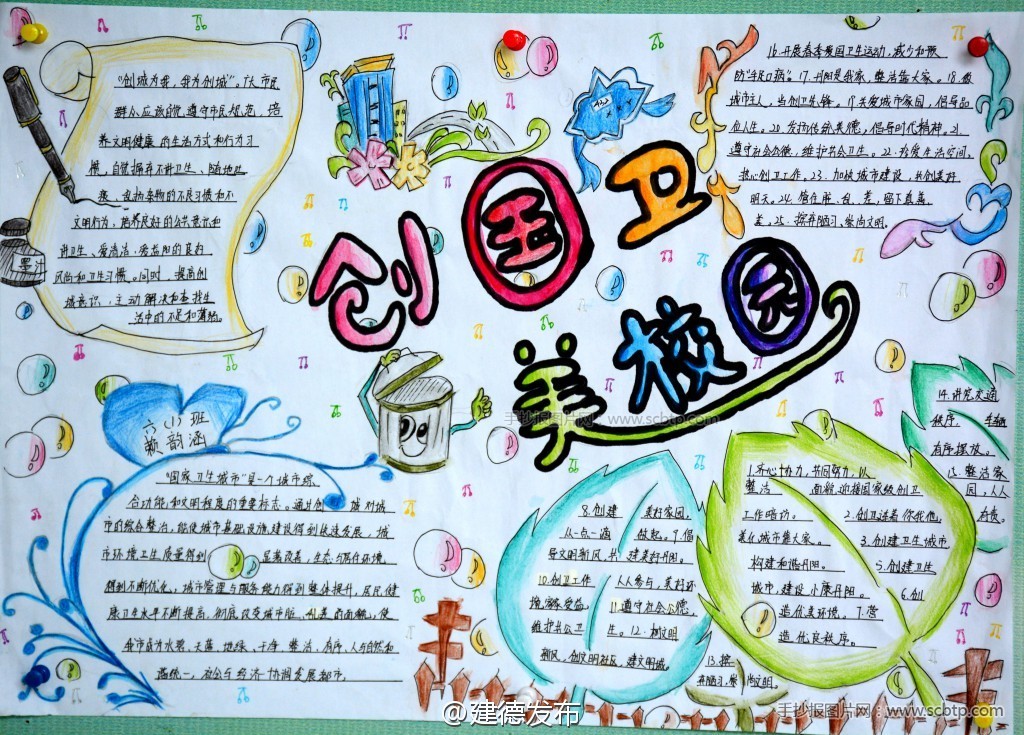 创国卫
美校园
"创城为我，我为创城"。广大市民
群众应该自觉遵守市民规范，培
养文明健康的生活方式和行为习
惯，自觉摒弃不讲卫生、随地吐
痰、乱扔杂物的不良习惯和不
文明行为，培养良好的公共意识和
讲卫生、爱清洁、
风尚和卫生习惯。同时，提高创
城意识，主动解决和查找生
活中的不足和薄弱。
墨汁
16.开展春季爱国卫生运动，减少和预
防"手足口病"。17.丹阳是我家，整洁靠大家。18.做
城市主人，当创卫先锋。19.关爱城市家园，倡导品
位人生。20.发扬传统美德，倡导时代精神。21.
遵守社会公德，维护公共卫生。22.珍爱生活空间，
投入创卫工作。23.加快城市建设，共创美好
明天。24.管住脏、乱、差，留下真善
美。25.摒弃陋习，崇尚文明。
六(1)班
颖韵涵
"国家卫生城市"是一个城市综
合功能和文明程度的重要标志。通过创 城对城
市的综合整治，能使城市基础设施建设得到快速发展，城
市环境卫生质量得到 显著改善，生态与居住环境
得到不断优化，城市管理与服务能力得到整体提升，居民健
康卫生水平不断提高，彻底改变城市脏、乱差的面貌，使
我市成为水碧、天蓝、地绿、干净、整洁、有序，人与自然和
谐统一，社会与经济协调发展都市。
8.创建 美好家园，
从一点一滴 做起。9.倡
导文明新风，共 建美好丹阳。
10.创卫工作 人人参与，美好环
境，家家受益。 11.遵守社会公德，
维护公共卫 生。12.树文明
新风，创文明社区，建文明城。
13.摒
弃陋习，崇尚文明。
1.齐心协力，共同努力，以
整洁 面貌，迎接国家级创卫
工作暗访。 2.创卫连着你我他，
美化城市靠大家。 3.创建卫生城市，
构建和谐丹阳。 5.创建卫生
城市，建设小康丹阳。 6.创
造优美环境。7.营
造优良秩序。
14.讲究交通
秩序，车辆
有序摆放。
15.整洁家
园，人人
有责。
手抄报图片网：www.scbtp.com
@建德发布
手抄报图片网：www.scbtp.com